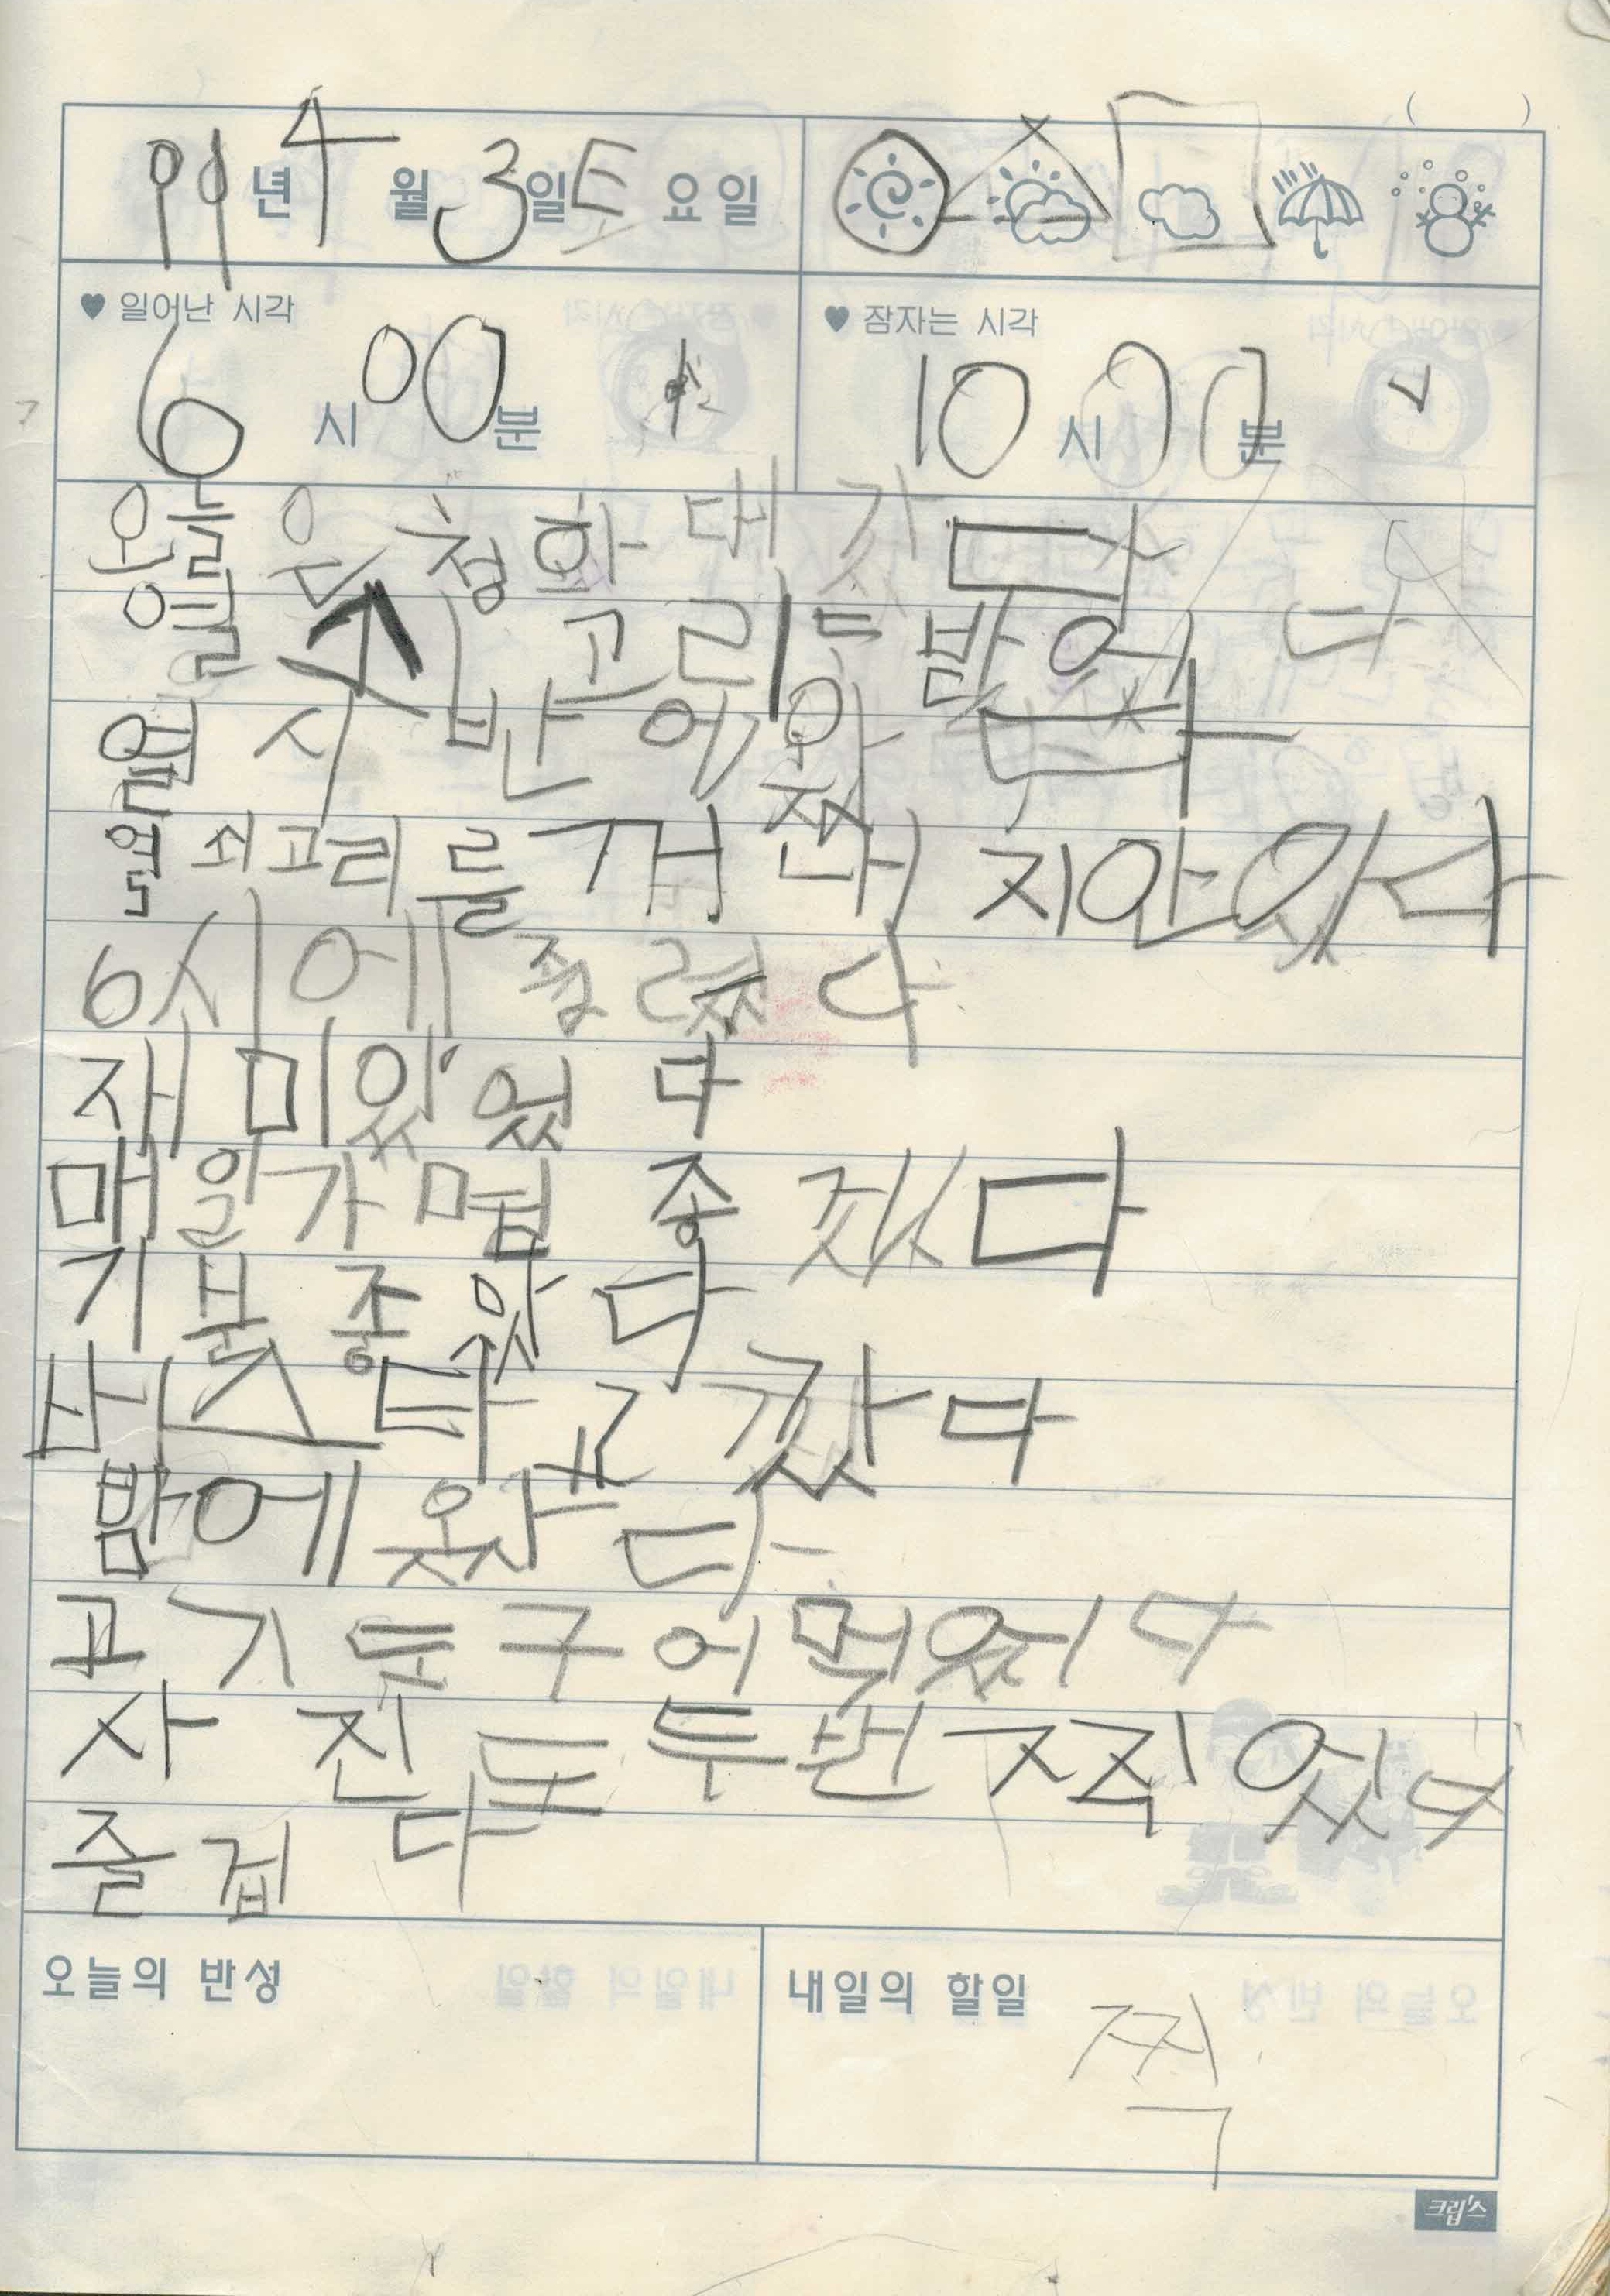 99년 4월 3일 토요일
♥ 일어난 시각
6시 00분
♥ 잠자는 시각
10시 00분
오늘은 청화대 갔다
열쇠 고리도 받았다
열시 반에 왔다
열쇠고리를 개 지안았다
6시에 졸렸다
재미있었다
매일가면 좋겠다
기분좋았다
버스타고 갔다
밤에 왔다
고기도 구어 먹었다
사진도 두번 찍었다
즐겁다
오늘의 반성
내일의 할일
찍
크립스